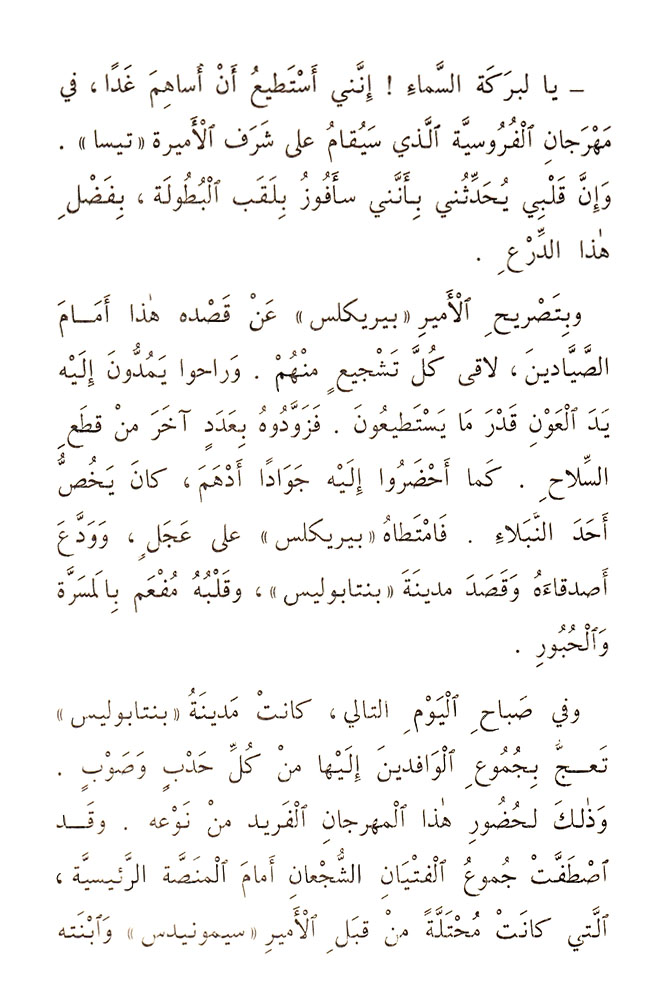 ـ يا لبرَكَة السَّماءِ ! إِنَّني أَسْتَطيعُ أَنْ أُساهِمَ غَدًا ، في
مَهْرَجانِ ٱلْفُروسيَّة ٱلَّذي سَيُقامُ على شَرَف ٱلْأَميرة «تيسا» .
وَإِنَّ قَلْبِي يُحَدِّثُني بِأَنَّني سأَفُوزُ بِلَقَب ٱلْبُطُولَة ، بِفَضْلِ
هٰذا الدِّرْعِ .
وبِتَصْريحِ ٱلْأَميرِ «بيريكلس» عَنْ قَصْده هٰذا أَمَــامَ
الصَّيَّادينَ ، لاقى كُلَّ تَشْجيعٍ منْهُمْ . وَراحوا يَمُدُّونَ إِلَيْه
يَدَ ٱلْعَوْنِ قَدْرَ مَا يَسْتَطيعُونَ . فَزَوَّدُوهُ بِعَدَدٍ آخَرَ منْ قطَعِ
السِّلاحِ . كَما أَحْضَرُوا إِلَيْه جَوَادًا أَدْهَمَ ، كانَ يَخُصُّ
أَحَدَ النُّبَلاءِ . فَامْتَطاهُ «بيريكلس» على عَجَلٍ ، وَوَدَّعَ
أَصدقاءَهُ وَقَصَدَ مدينَةَ «بنتابوليس» ، وقَلْبُهُ مُفْعَم بِالمَسَرَّة
وَٱلْحُبُورِ .
وفي صَباحِ ٱلْيَوْمِ التالي ، كانتْ مَدينَةُ «بنتابوليس»
تَعــجُّ بِجُمُوعِ ٱلْوَافدينَ إِلَيْها منْ كُلِّ حَدْبٍ وَصَوْبٍ .
وَذٰلكَ لحُضُورِ هٰذا ٱلْمهرجانِ ٱلْفَريد منْ نَوْعه . وقَــد
ٱصْطَفَّتْ جُموعُ ٱلْفتْيَانِ الشُّجْعانِ أَمامَ ٱلْمنَصَّة الرَّئيسيَّة ،
ٱلَّتي كانَتْ مُحْتَلَّةً منْ قبَلِ ٱلْأَميرِ «سيمونيدس» وَٱبْنَته